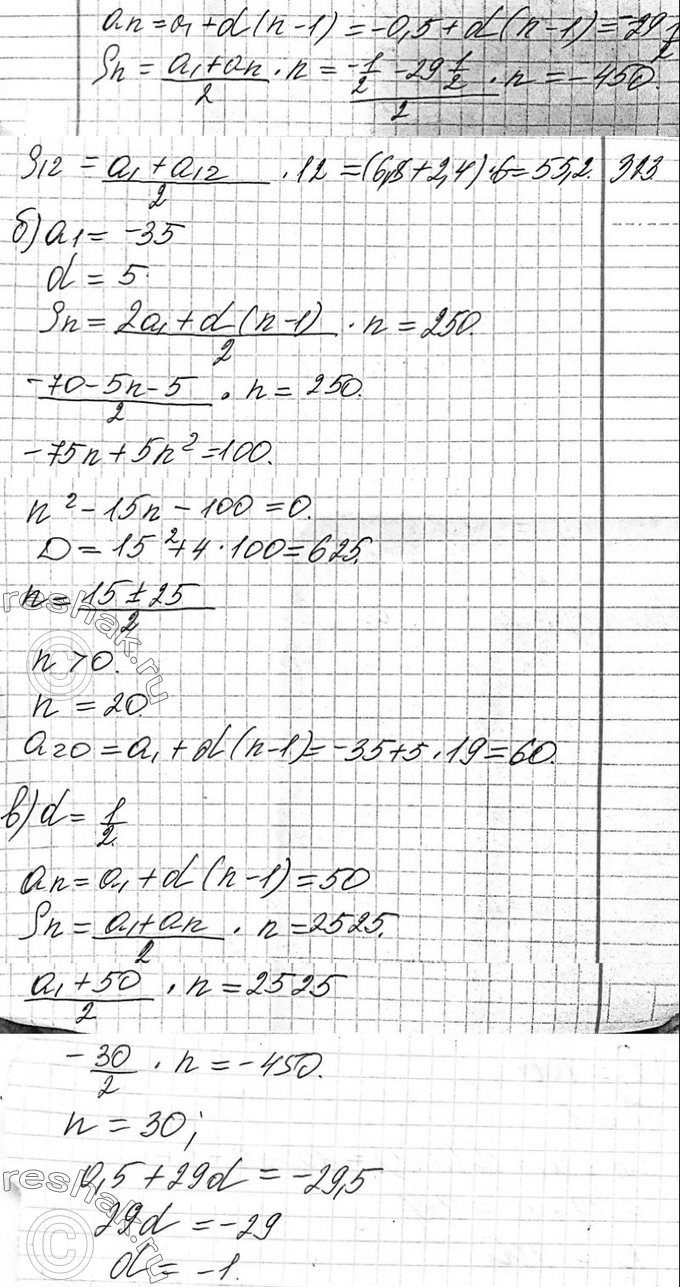 an = a1 + d(n-1) = -0,5 + d(n-1) = -29 1/2
Sn = (a1 + an)/2 · n = (-1/2 - 29 1/2)/2 · n = -450.
S12 = (a1 + a12)/2 · 12 = (6,8 + 2,4) · 6 = 55,2. 323
б) a1 = -35
d = 5
Sn = (2a1 + d(n-1))/2 · n = 250.
(-70 - 5n - 5)/2 · n = 250.
-75n + 5n² = 100.
n² - 15n - 100 = 0.
D = 15² + 4 · 100 = 625.
n = (15 ± 25)/2
n > 0.
n = 20.
a20 = a1 + d(n-1) = -35 + 5 · 19 = 60.
в) d = 1/2.
an = a1 + d(n-1) = 50
Sn = (a1 + an)/2 · n = 2525.
(a1 + 50)/2 · n = 2525
-30/2 · n = -450.
n = 30;
0,5 + 29d = -29,5
29d = -29
d = -1.
reshak.ru
reshak.ru